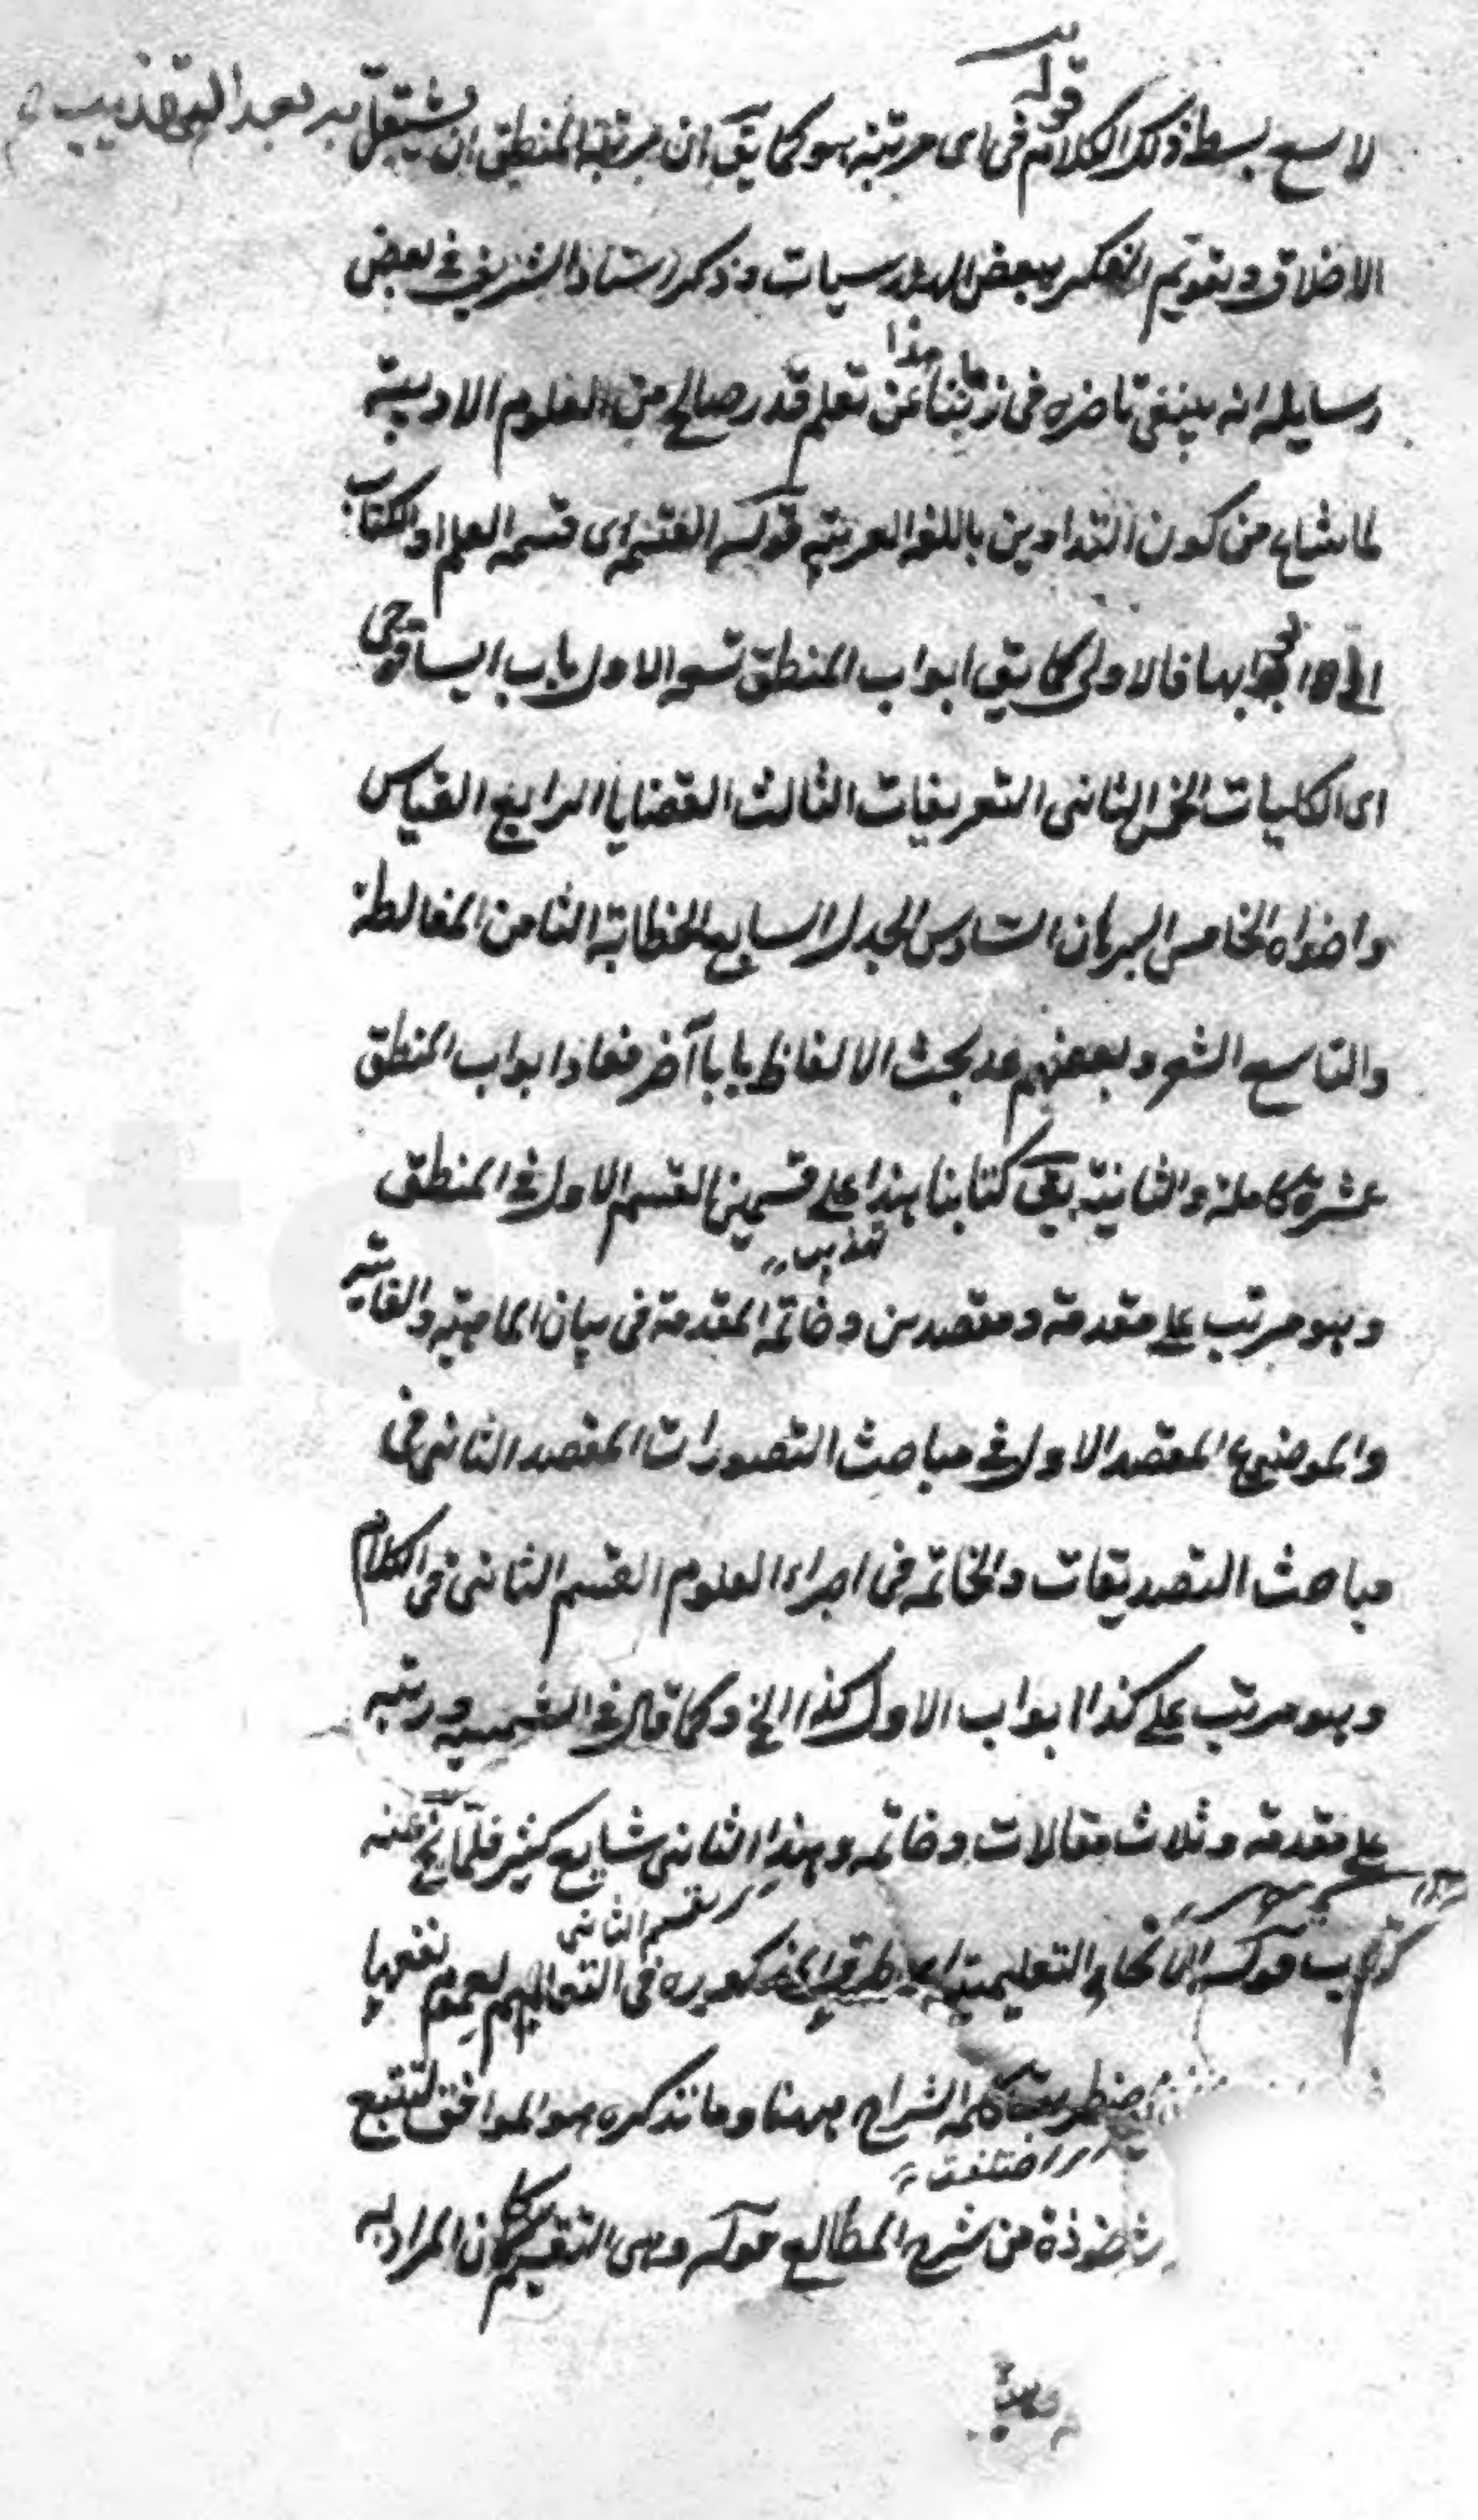 لا يسع بسطه ذلك الكلام قوله فى اى مرتبة هو كما يق ان مرتبة المنطق ان يشتغل به بعد التهذيب
الاخلاق وتقويم الفكر ببعض الهندسيات وذكر استاذ الشريف فى بعض
رسايله انه ينبغى تاخره فى زماننا هذا عن تعلم قدر صالح من العلوم الادبية
لما شاع من كون التداوين باللغه العربية قوله القسمه اى قسمة العلم او الكتاب
الى ابوابها فالاولى كما يق ابواب المنطق تسعه الاول باب ايساغوجى
اى الكليات الخمس الثانى التعريفات الثالث القضايا الرابع القياس
واخواه الخامس البرهان السادس الجدل السابع الخطابة الثامن المغالطة
والتاسع الشعر وبعضهم عد بحث الالفاظ بابا آخر فعاد ابواب المنطق
عشرة كاملة والثانية يق كتابنا هذا على قسمين القسم الاول فى المنطق
تهذيب
وهو مرتب على مقدمة ومقصدين وخاتمه المقدمة فى بيان الماهية والغاية
والموضوع المقصد الاول فى مباحث التصورات المقصد الثانى فى
مباحث التصديقات والخاتمه فى اجزاء العلوم القسم الثانى فى الكلام
وهو مرتب على كذا ابواب الاول كذا الخ وكما قال فى الشمسيه ورتبه
على مقدمة وثلاث مقالات وخاتمه وهذا الثانى شايع كثير فلما يخ عنه
القسم الثانى
كتاب قوله الانحاء التعليمية اى الطرق المذكوره فى التعاليم لعموم نفعها
كلمة الشراح ههنا وما نذكره هو الموافق لتتبع
اختلفت
من شرح المطالع قوله وهى التقسيم كان المراد به